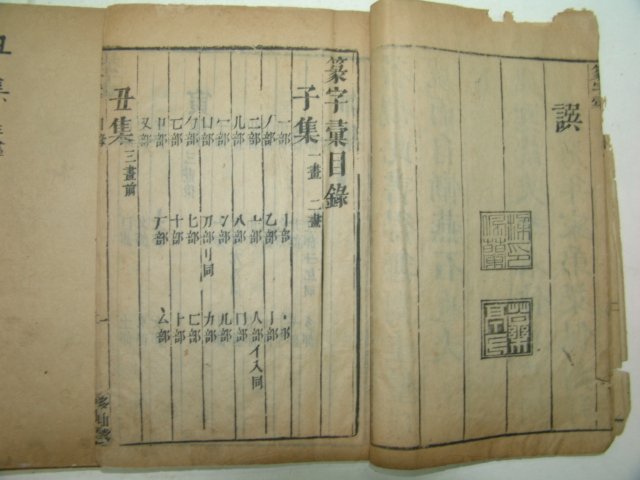 譔
篆字彙目錄
子集 一畫 二畫
一部 丨部 丶部
丿部 乙部 亅部
二部 亠部 人部 亻入同
儿部 八部 冂部
冖部 冫部 几部
凵部 刀部 刂同 力部
勹部 匕部 匚部
匸部 十部 卜部
卩部 厂部 厶部
又部
丑集 三畫前
丑集